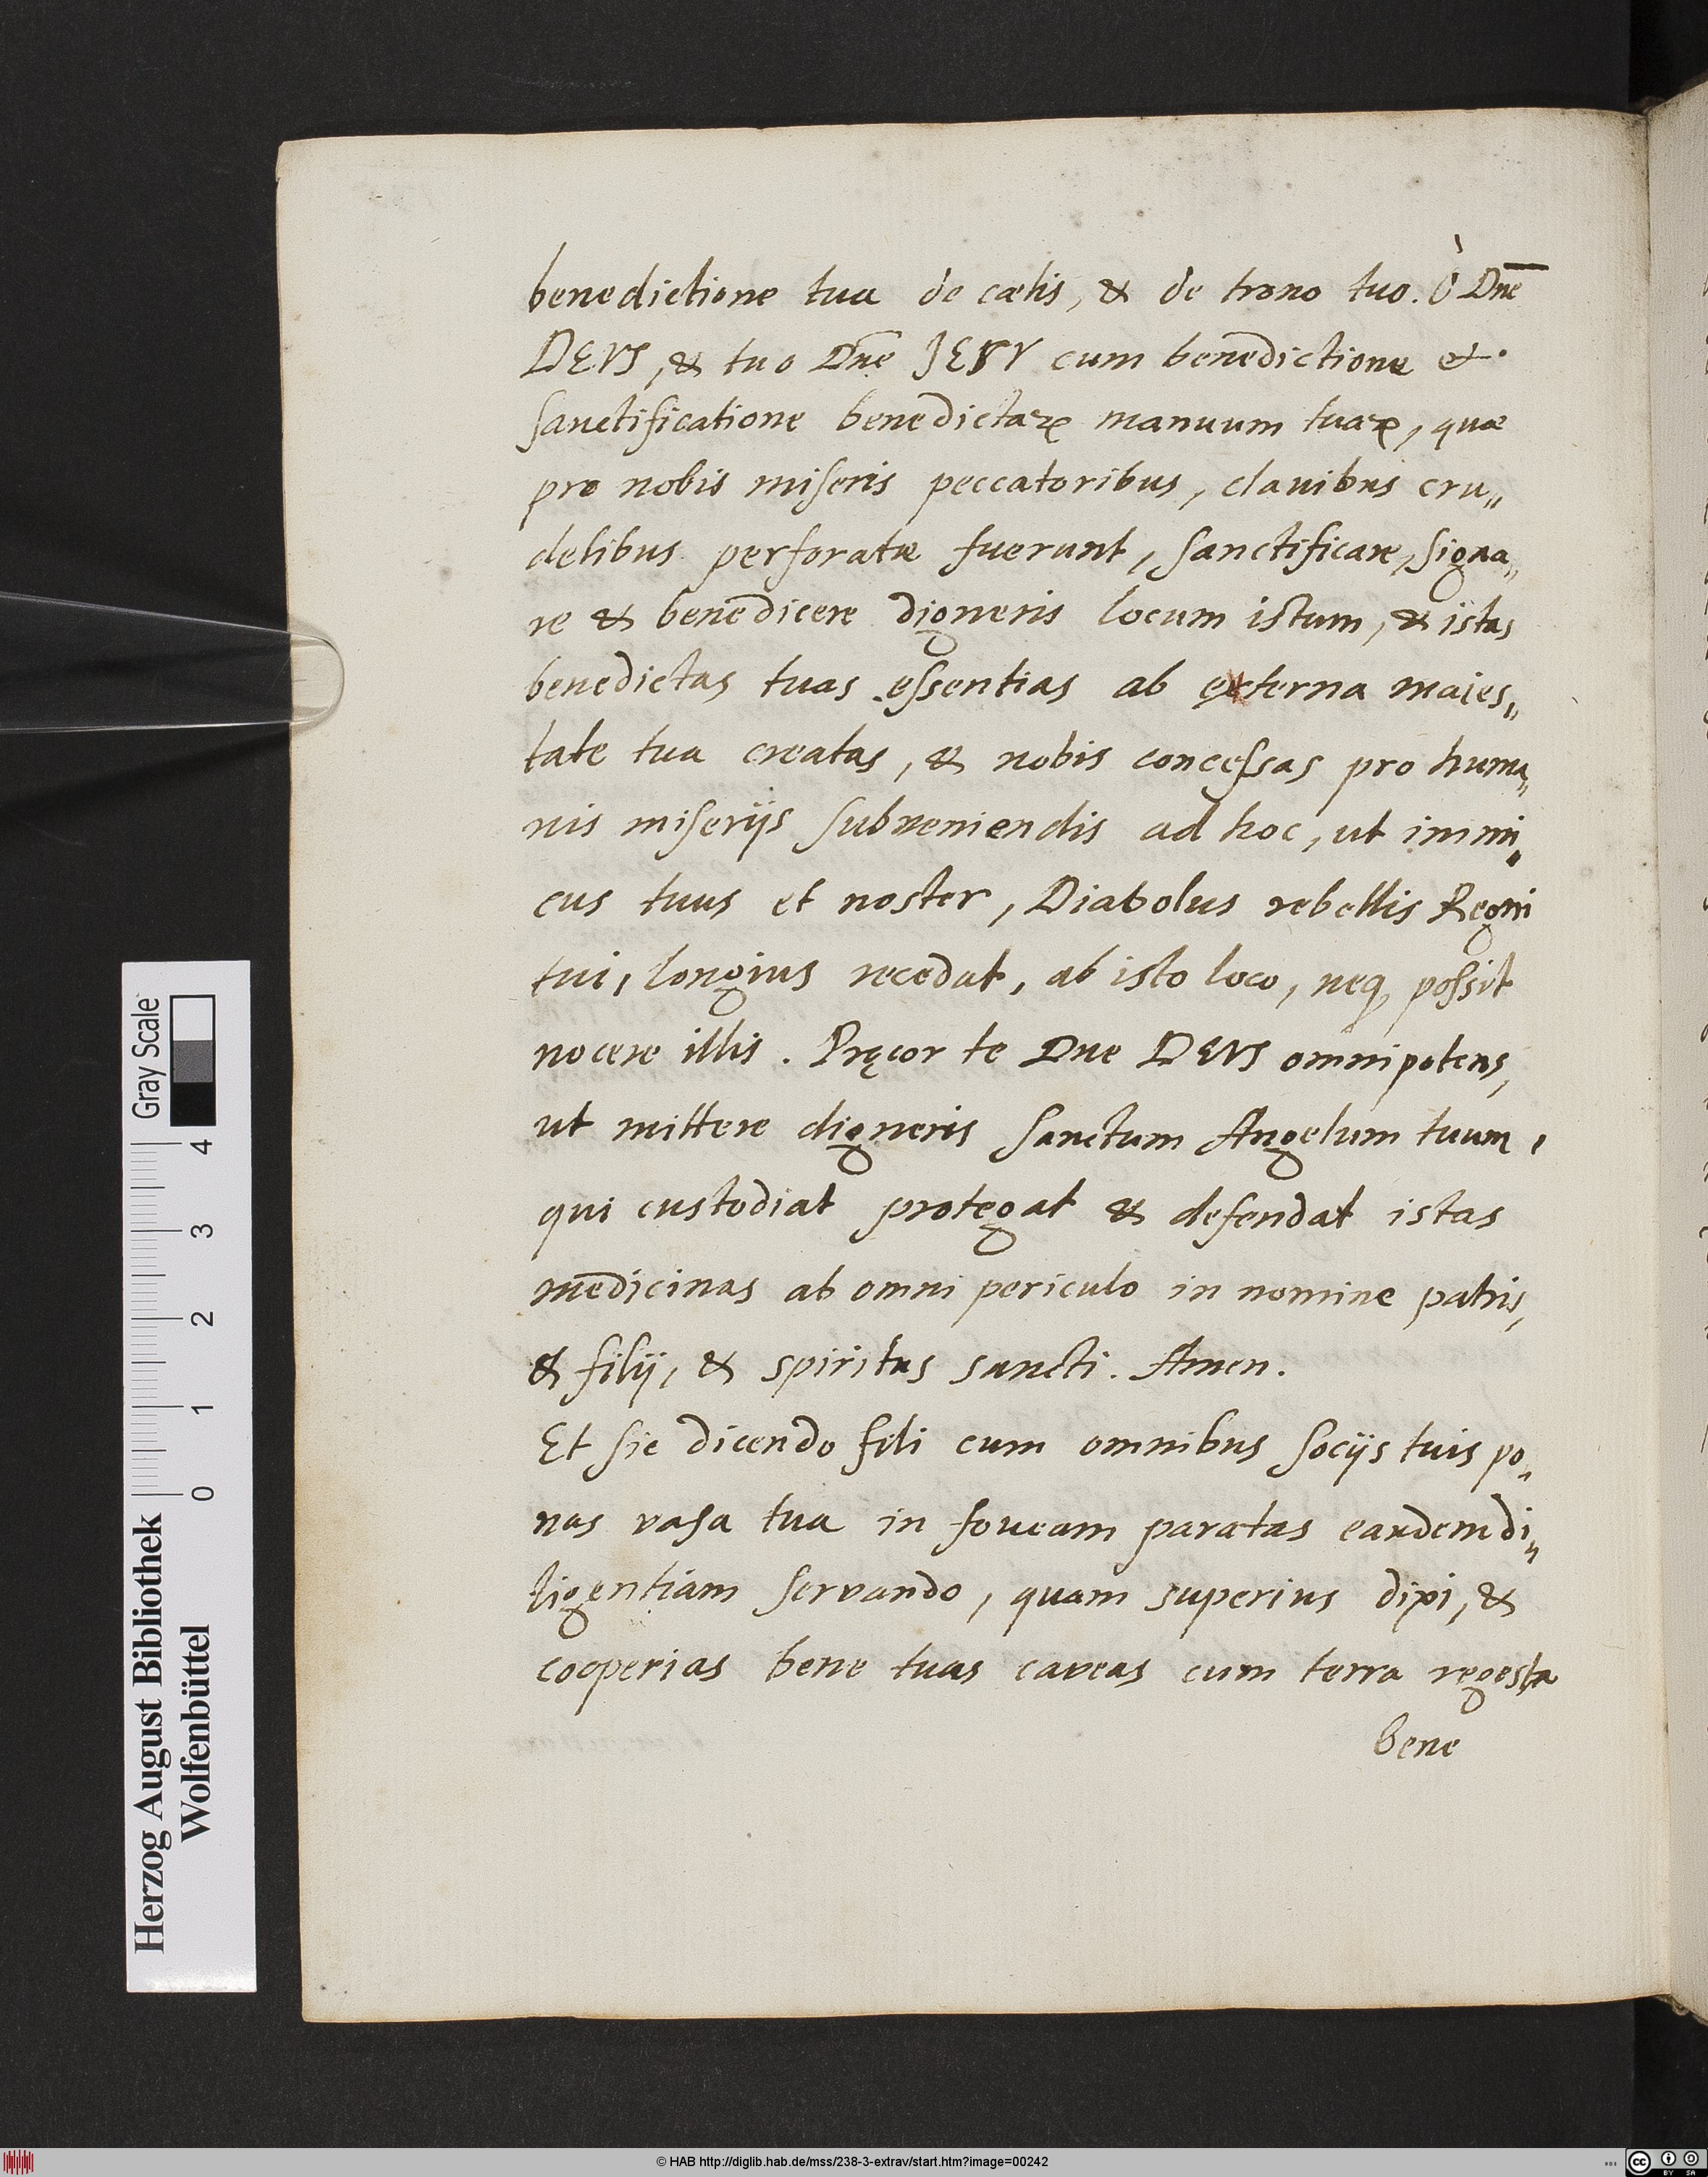 benedictione tua de cælis, & de trono tuo. Ò Dn̄e
DEVS, & tuo Dn̄e JESV cum benēdictione et
sanctificatione benedictaꝝ manuum tuaꝝ, quæ
pro nobis miseris peccatoribus, clauibus cru„
delibus perforatæ fuerunt, sanctificare, signa„
re & benēdicere digneris locum istum, & istas
benedictas tuas essentias ab externa maies„
tate tua creatas, & nobis concessas pro huma„
nis miserijs subveniendis ad hoc, ut inimi„
cus tuus et noster, Diabolus rebellis Regni
tui, longius recedat, ab isto loco, neq, possit
nocere illis. Pręcor te Dne DEVS omnipotens,
ut mittere digneris sanctum Angelum tuum,
qui custodiat protegat & defendat istas
mēdicinas ab omni periculo in nomine patris,
& filij, & spiritus sancti. Amen.
Et sic dicendo fili cum omnibus socijs tuis po„
nas vasa tua in foveam paratas eandem di„
ligentiam servando, quam superius dixi, &
cooperias bene tuas caveas cum terra regesta
bene
Herzog August Bibliothek
Wolfenbüttel
0 1 2 3 4
Gray Scale
© HAB http://diglib.hab.de/mss/238-3-extrav/start.htm?image=00242